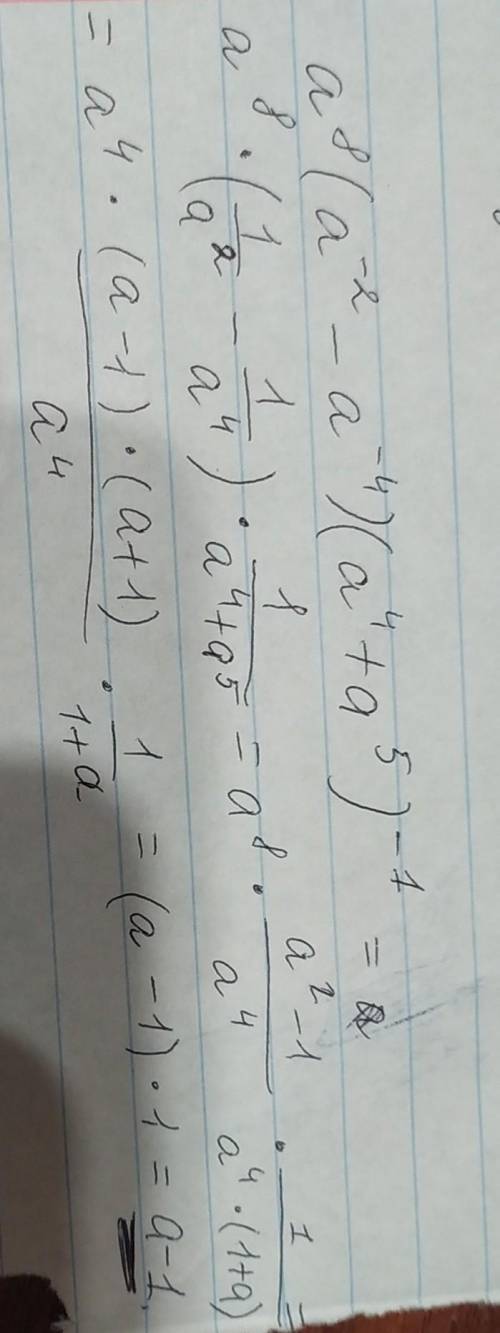 a⁸(a⁻² - a⁻⁴)(a⁴ + a⁵)⁻¹ =
a⁸ · (1/a² - 1/a⁴) · 1/(a⁴+a⁵) = a⁸ · (a² - 1)/a⁴ · 1/(a⁴·(1+a)) =
= a⁴ · (a-1)·(a+1)/a⁴ · 1/(1+a) = (a-1)·1 = a-1